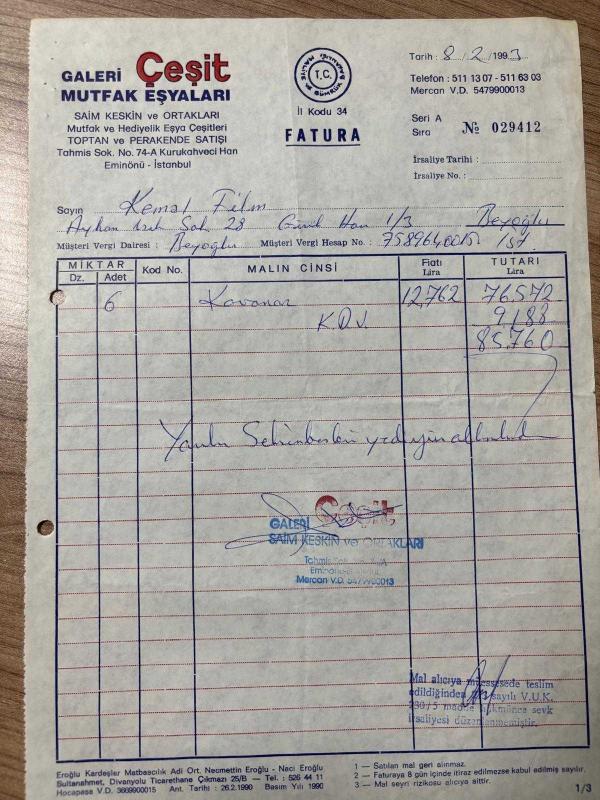 GALERİ Çeşit
MUTFAK EŞYALARI
SAİM KESKİN ve ORTAKLARI
Mutfak ve Hediyelik Eşya Çeşitleri
TOPTAN ve PERAKENDE SATIŞI
Tahmis Sok. No. 74-A Kurukahveci Han
Eminönü - İstanbul
T.C.
MALİYE ve GÜMRÜK BAKANLIĞI
İl Kodu 34
FATURA
Tarih : 8 / 2 / 1993
Telefon : 511 13 07 - 511 63 03
Mercan V.D. 5479900013
Seri A
Sıra № 029412
İrsaliye Tarihi :
İrsaliye No. :
Sayın Kemal Film
Ayhan Işık Sok. 28 Güral Han 1/3 Beyoğlu
Müşteri Vergi Dairesi : Beyoğlu Müşteri Vergi Hesap No. : 7589640015 İst.
MİKTAR Kod No. MALIN CİNSİ Fiatı TUTARI
Dz. Adet Lira Lira
6 Kavanoz 12,762 76.572
K.D.V. 9,188
85,760
Yalnız Seksenbeşbin yediyüzaltmış
GALERİ Çeşit
SAİM KESKİN ve ORTAKLARI
Mercan V.D. 5479900013
Mal alıcıya müessesede teslim
edildiğinden sayılı V.U.K.
230/5 madde hükmünce sevk
irsaliyesi düzenlenmemiştir.
Eroğlu Kardeşler Matbascılık Adi Ort. Necmettin Eroğlu - Naci Eroğlu
Sultanahmet, Divanyolu Ticarethane Çıkmazı 25/B — Tel. : 526 44 11
Hocapaşa V.D. 3669900015 Ant. Tarihi : 26.2.1990 Basım Yılı 1990
1 — Satılan mal geri alınmaz.
2 — Faturaya 8 gün içinde itiraz edilmezse kabul edilmiş sayılır.
3 — Mal seyri rizikosu alıcıya aittir.
1/3